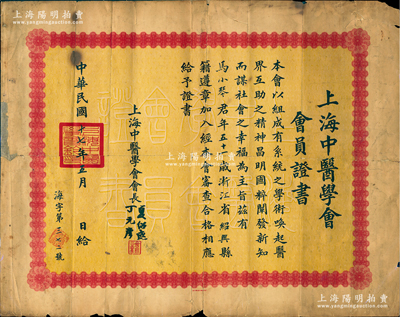 上海陽明拍賣
上海中醫學會
會員證書
本會以組成有系統之學術喚起醫
界互助之精神昌明國粹闡發新知
而謀社會之幸福為主旨茲有
馬小琴君年五十二歲浙江省紹興縣
籍遵章加入經本會審查合格相應
給予證書
上海中醫學會會長
夏應堂
丁元彥
中華民國十七年五月 日給
海字第 號
上海陽明拍賣